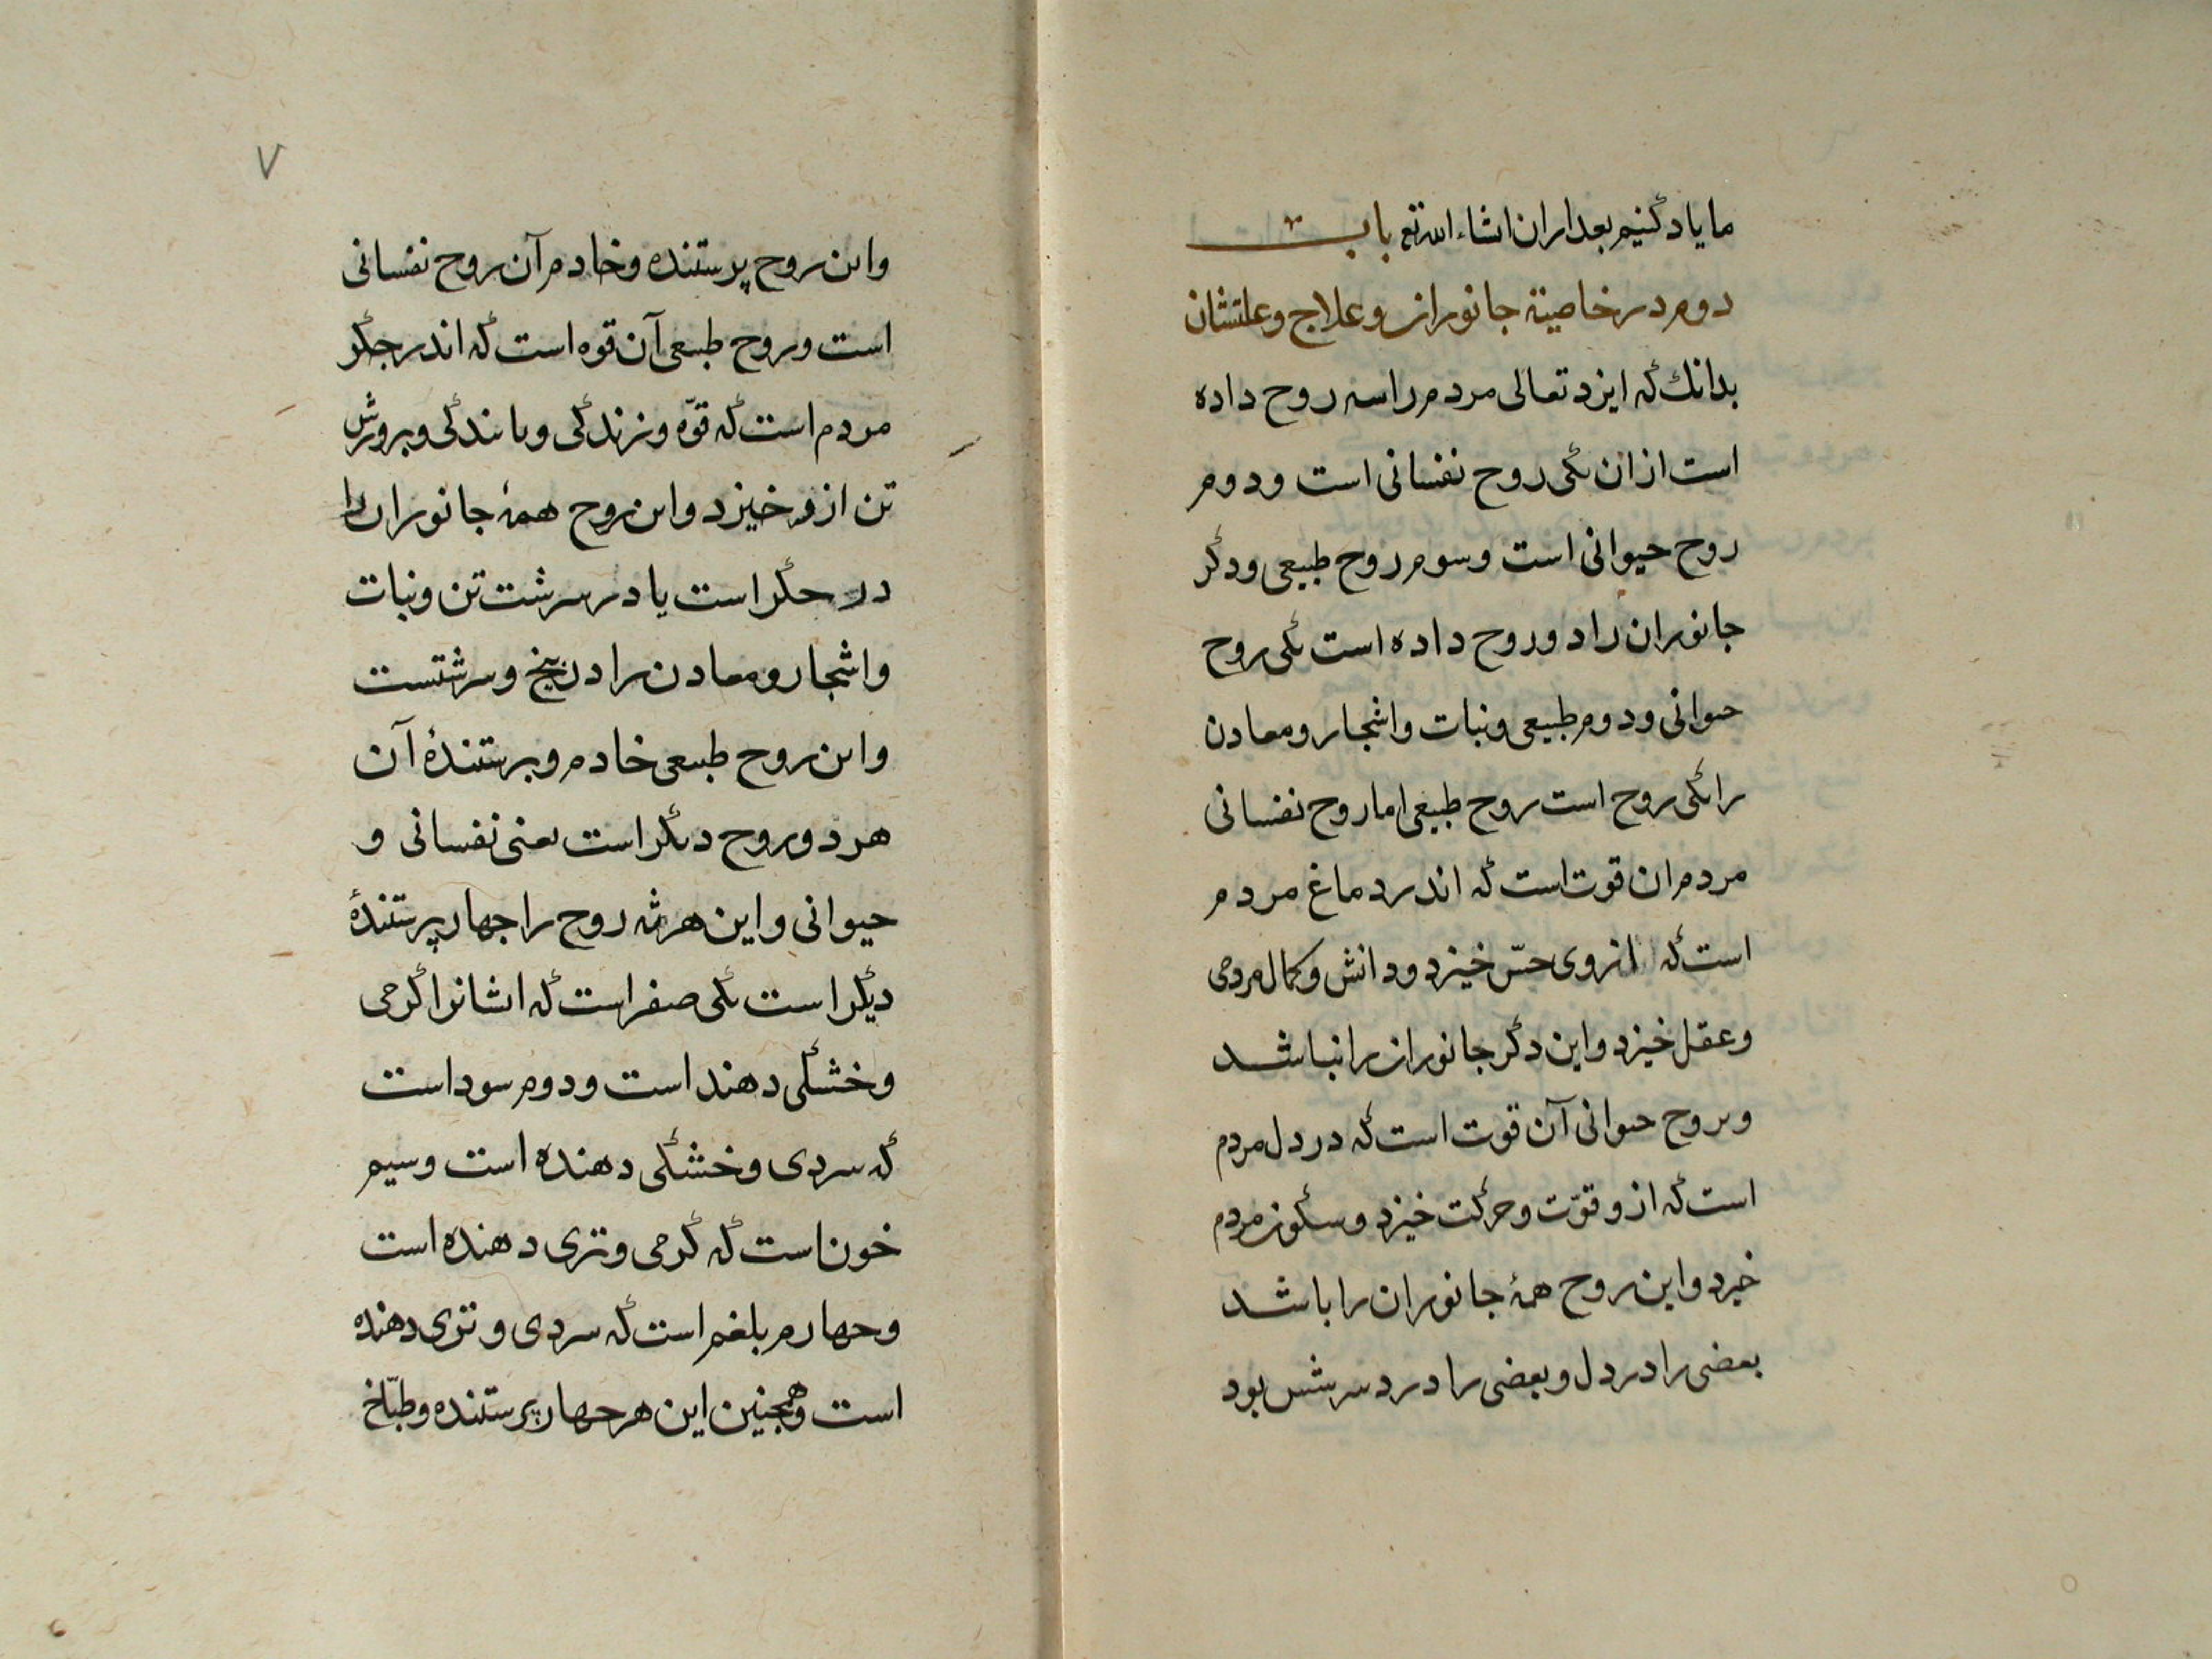 ما یاد کنیم بعد ازان انشاء الله تع باب
دوم در خاصیة جانوران و علاج و علتشان
بدانك که ایزد تعالی مردم را سه روح داده
است ازان یکی روح نفسانی است و دوم
روح حیوانی است و سوم روح طبیعی و دکر
جانوران را دو روح داده است یکی روح
حیوانی و دوم طبیعی و نبات و اشجار و معادن
را یکی روح است روح طبیعی اما روح نفسانی
مردم ان قوت است که اندر دماغ مردم
است که از وی حسّ خیزد و دانش و کمال مردمی
و عقل خیزد و این دکر جانوران را نباشد
و روح حیوانی آن قوت است که در دل مردم
است که ازو قوّت و حرکت خیزد و سکون مردم
خیزد و این روح همهٔ جانوران را باشد
بعضی را در دل و بعضی را در سرشس بود
۷
و این روح پرستنده و خادم آن روح نفسانی
است و روح طبیعی آن قوه است که اندر جکر
مردم است که قوّه و زندکی و بایندکی و پرورش
تن ازو خیزد و این روح همهٔ جانوران را
در جکر است یا در سرشت تن و نبات
و اشجار و معادن را در بیخ و سرشتست
و این روح طبیعی خادم و پرستندهٔ آن
هر دو روح دیکر است یعنی نفسانی و
حیوانی و این هر سه روح را چهار پرستندهٔ
دیکر است یکی صفر است که ایشانرا کرمی
و خشکی دهند است و دوم سود است
که سردی و خشکی دهنده است و سیم
خون است که کرمی و تری دهنده است
و چهارم بلغم است که سردی و تری دهنده
است و همچنین این هر چهار پرستنده و طبّاخ